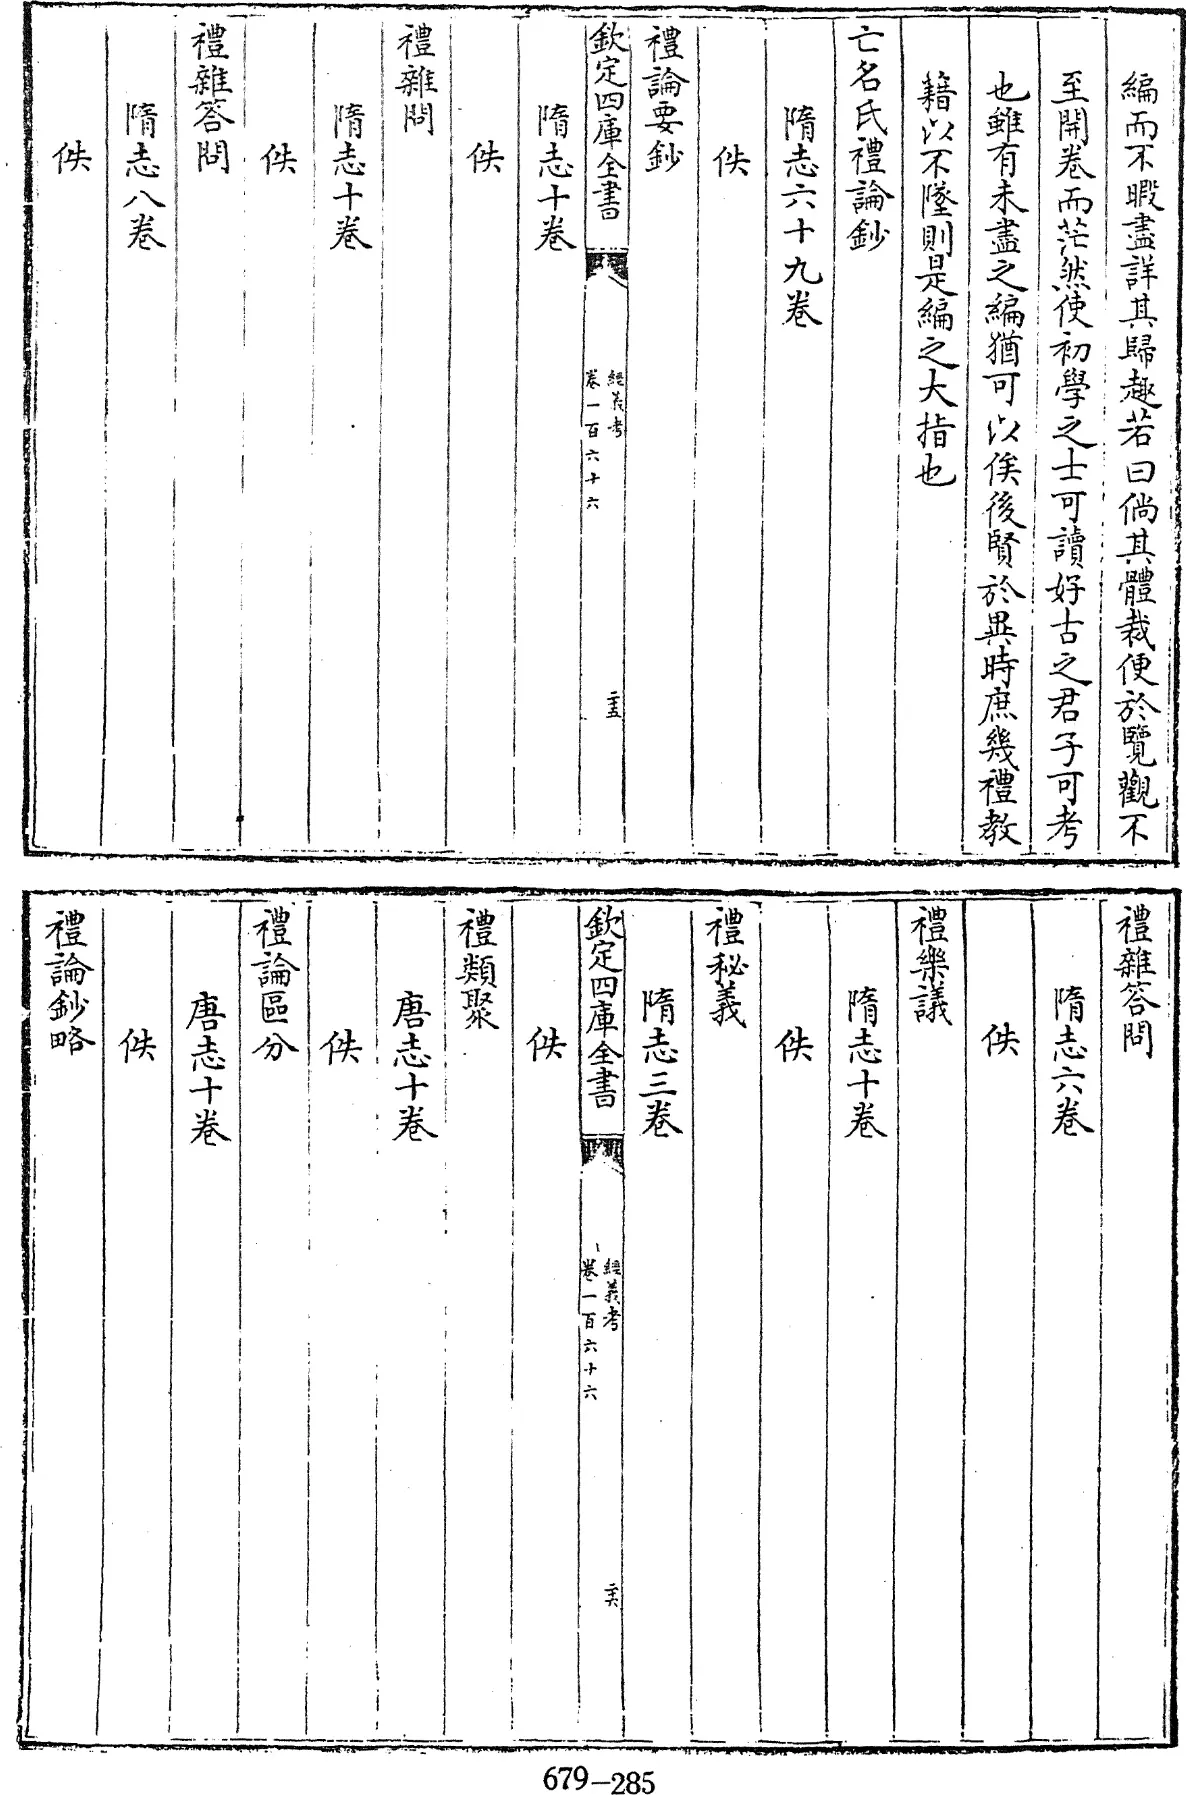 編而不暇盡詳其歸趣若曰倘其體裁便於覽觀不
至開卷而茫然使初學之士可讀好古之君子可考
也雖有未盡之編猶可以俟後賢於異時庶幾禮教
籍以不墜則是編之大指也
亡名氏禮論鈔
隋志六十九卷
佚
禮論要鈔
欽定四庫全書
經義考
卷一百六十六
二十五
隋志十卷
佚
禮雜問
隋志十卷
佚
禮雜答問
隋志八卷
佚
禮雜答問
隋志六卷
佚
禮樂議
隋志十卷
佚
禮秘義
隋志三卷
欽定四庫全書
經義考
卷一百六十六
二十六
佚
禮類聚
唐志十卷
佚
禮論區分
唐志十卷
佚
禮論鈔略
679-285